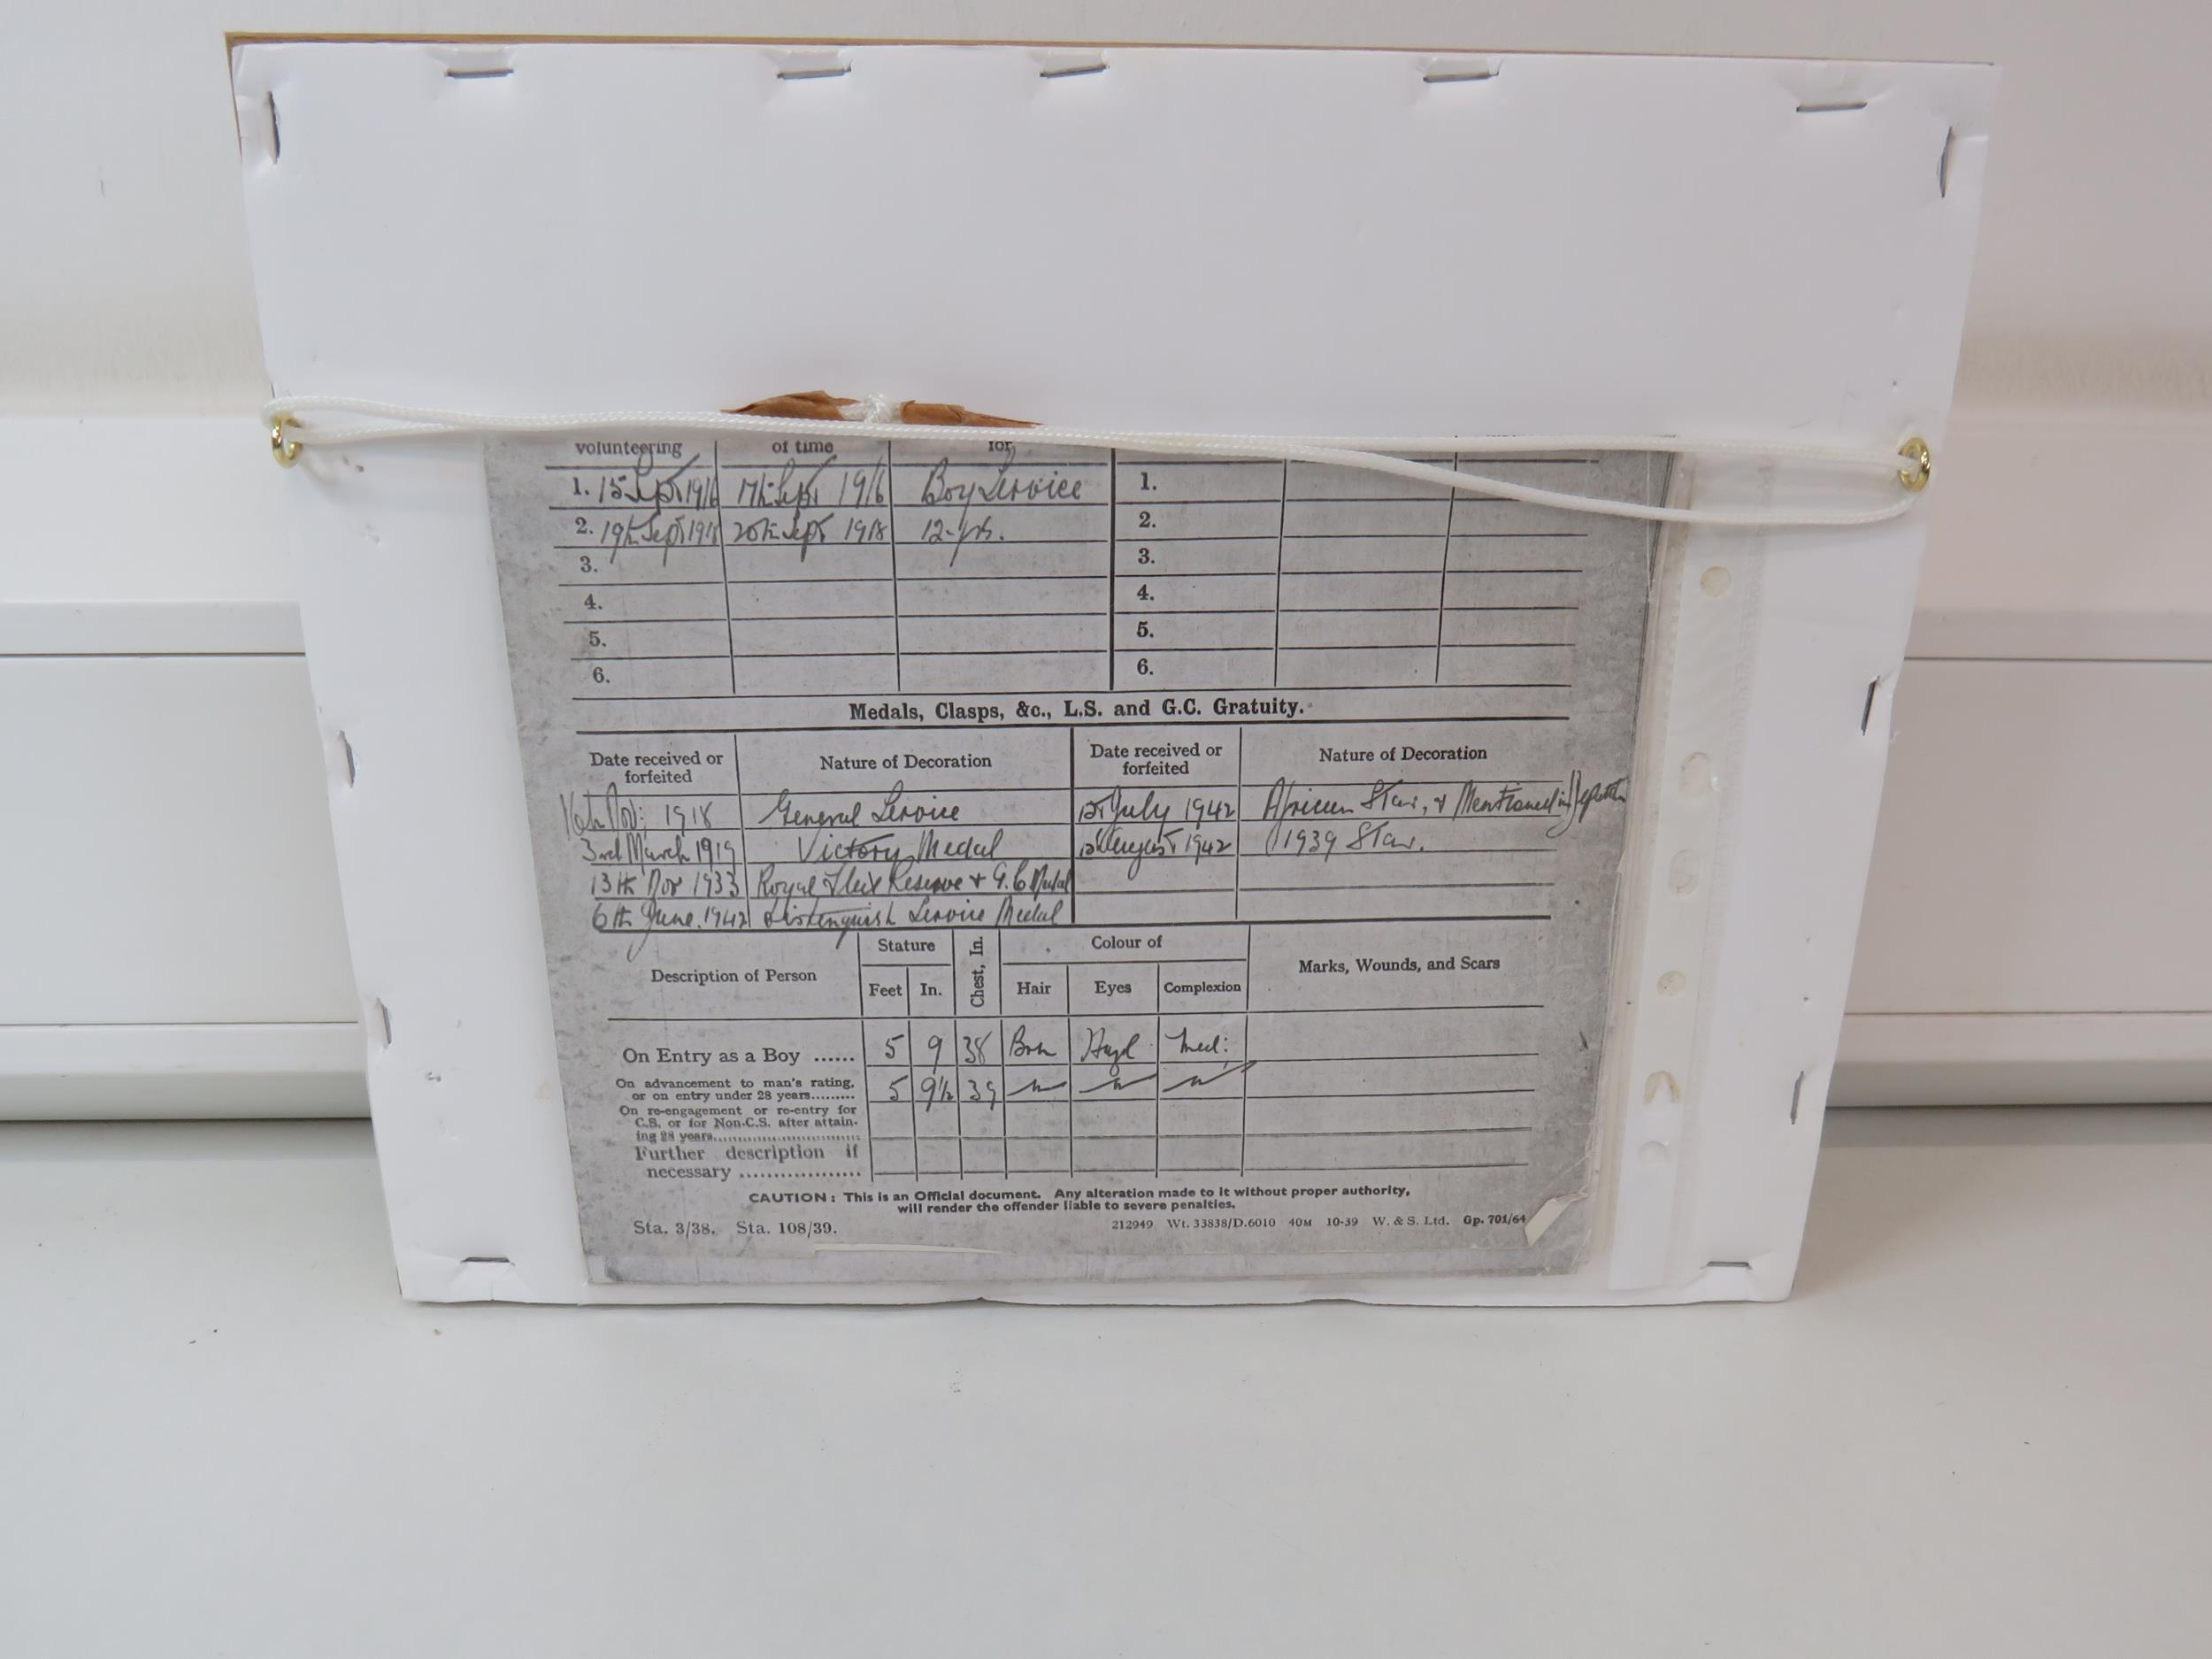 volunteering of time for
1. 15 Sept 1916 17th Sept 1916 Boy Service 1.
2. 19th Sept 1918 20th Sept 1918 12-yrs. 2.
3. 3.
4. 4.
5. 5.
6. 6.
Medals, Clasps, &c., L.S. and G.C. Gratuity.
Date received or forfeited Nature of Decoration Date received or forfeited Nature of Decoration
Nov: 1918 General Service July 1942 African Star, & Mentioned in
3rd March 1919 Victory Medal August 1942 1939 Star.
13th Nov 1933 Royal Fleet Reserve & G.C Medal
6th June. 1942 Distinguish Service Medal
Description of Person Stature Chest, In. Colour of Marks, Wounds, and Scars
Feet In. Hair Eyes Complexion
On Entry as a Boy ...... 5 9 38 Brn Hazel Med:
On advancement to man's rating,
or on entry under 28 years......... 5 9½ 39 " " "
On re-engagement or re-entry for
C.S. or for Non-C.S. after attain-
ing 28 years..............................
Further description if
necessary ...................
CAUTION: This is an Official document. Any alteration made to it without proper authority,
will render the offender liable to severe penalties.
Sta. 3/38. Sta. 108/39. 212949 Wt. 33838/D.6010 40M 10-39 W. & S. Ltd. Gp. 701/64